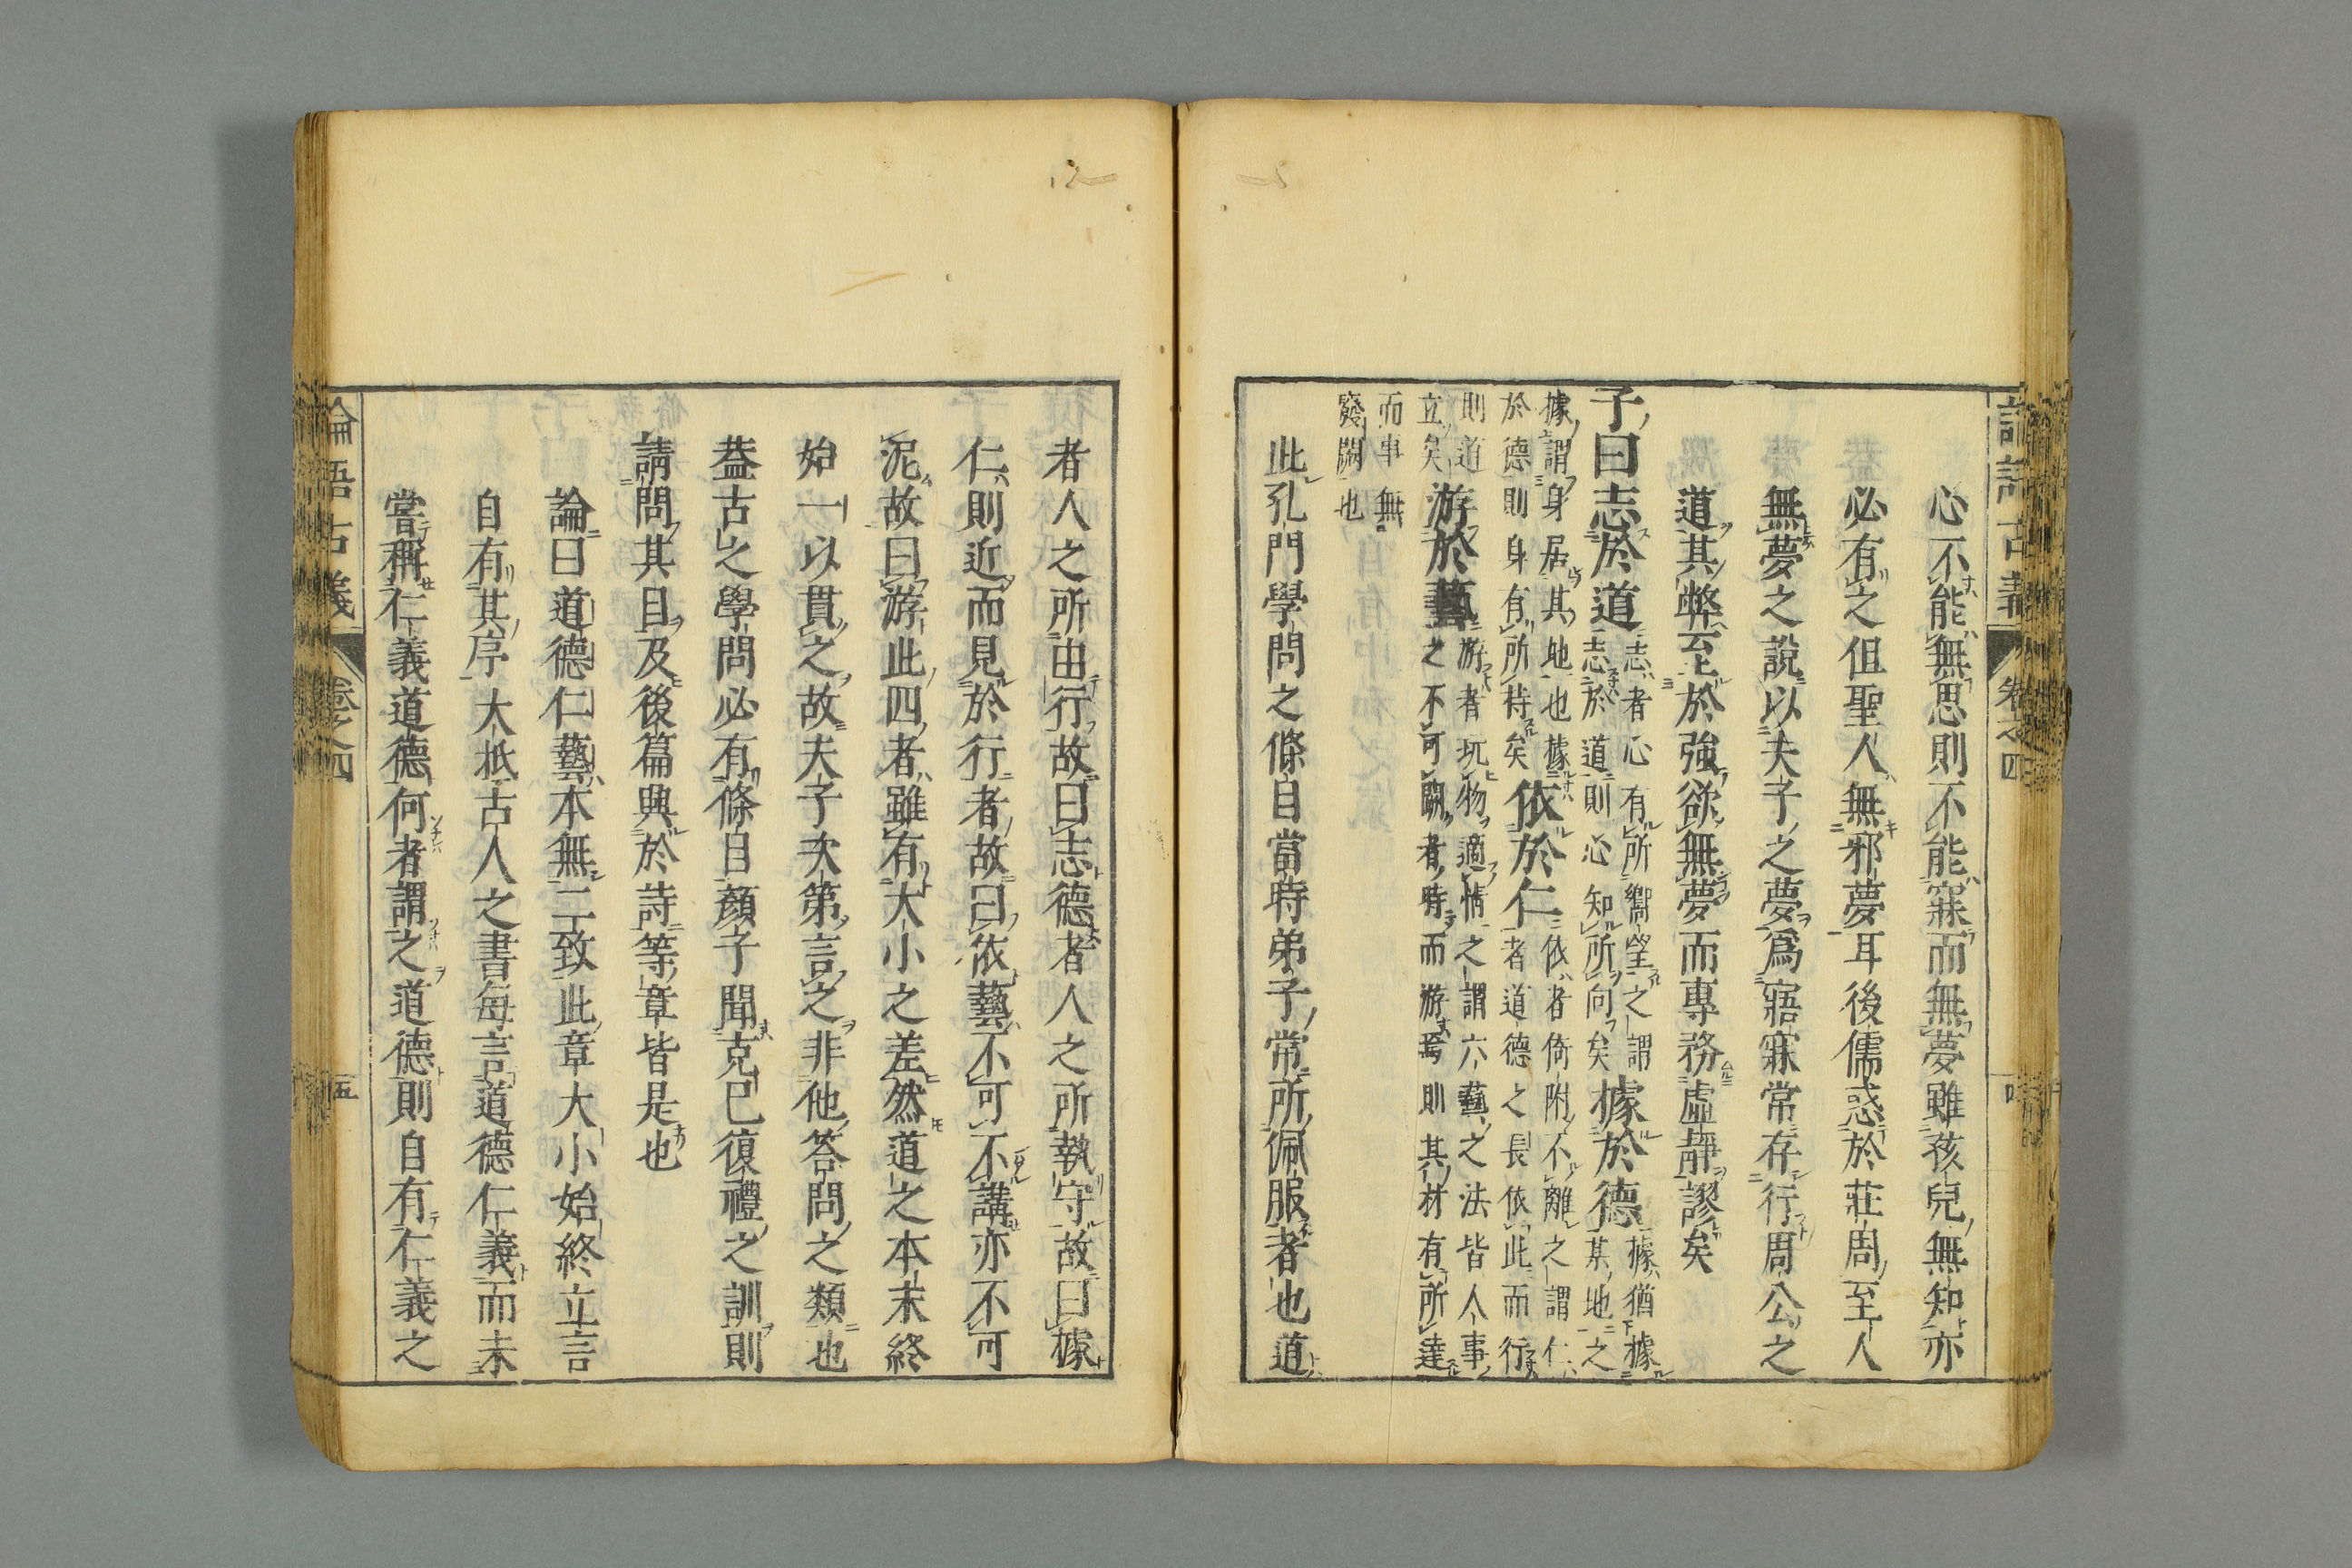 論語古義 卷之四
心不能無思則不能寐而無夢雖孩兒無知亦
必有之但聖人無邪夢耳後儒惑於莊周至人
無夢之說以夫子之夢爲寤寐常存行周公之
道其弊至於強欲無夢而專務虛靜謬矣
子曰志於道
志者心有所嚮望之謂
志於道則心知所向矣
據於德
據猶據
其地之
據謂身居其地也據
於德則身有所待矣
依於仁
依者倚附不離之謂仁
者道德之長依此而行
則道
立矣
游於藝
游者玩物適情之謂六藝之法皆人事
之不可闕者時而游焉則其材有所達
而事無
廢闕也
此孔門學問之條目當時弟子常所佩服者也道
者人之所由行故曰志德者人之所執守故曰據
仁則近而見於行者故曰依藝不可不講亦不可
泥故曰游此四者雖有大小之差然道之本末終
始一以貫之故夫子次第言之非他答問之類也
葢古之學問必有條目顏子聞克己復禮之訓則
請問其目及後篇興於詩等章皆是也
論曰道德仁藝本無二致此章大小始終立言
自有其序大抵古人之書每言道德仁義而未
嘗稱仁義道德何者謂之道德則自有仁義之
論語古義 卷之四 五